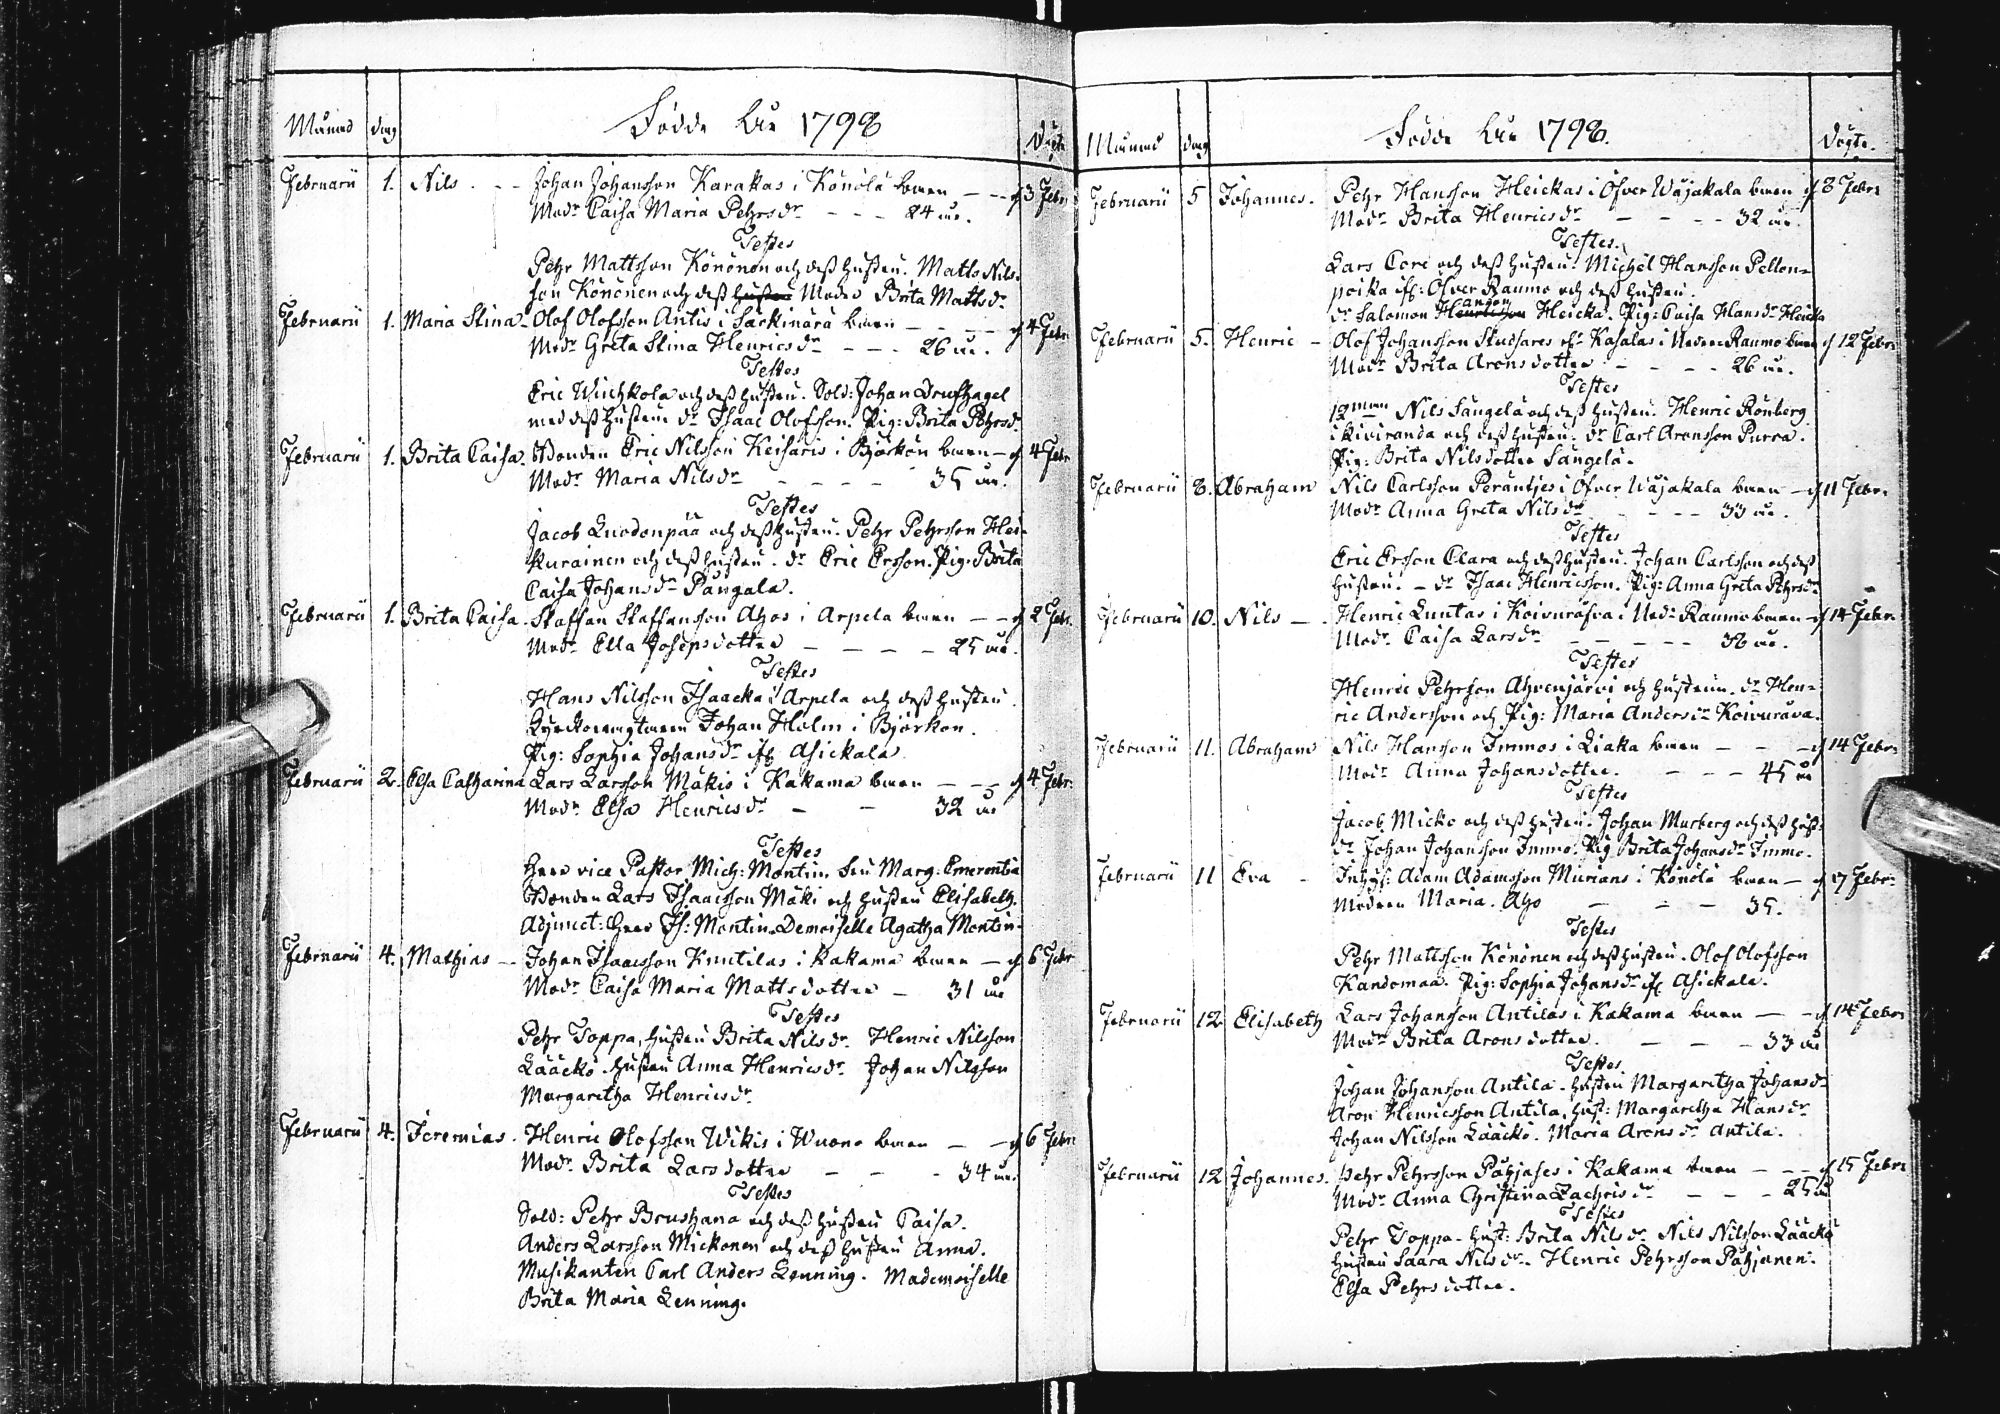 Månad dag Födde År 1798 Döpte
Februarii 1. Nils. Johan Johansson Karakas i Könölä barn d 3 Febr.
Modr Caisa Maria Pehrsdr 24 år.
Testes
Pehr Mattsson Könönen och dess hustru. Matts Nils-
son Könönen och dess Moder Brita Mattsdr
Februarii 1. Maria Stina Olof Olofsson Antis i Särkinärä barn d 4 Febr
Modr Greta Stina Henricsdr 26 år.
Testes
Eric och dess hustru. Sold: Johan
med dess hustru dr Isaac Olofsson. Pig: Brita Pehrsd.
Februarii 1. Brita Caisa. Bonden Eric Nilsson Keisaris i Björkön barn d 4 Febr
Modr Maria Nilsdr 35 år.
Testes
Jacob Luodonpää och dess hustru. Pehr Pehrsson Hei-
kurainen och dess hustru. dr Eric Ersson. Pig: Brita
Caisa Johansdr Pångala.
Februarii 1. Brita Caisa. Staffan Staffansson Ahos i Arpela barn d 2 Febr.
Modr Ella Josepsdotter 25 år.
Testes
Hans Nilsson Isaacka i Arpela och dess hustru.
Johan Holm i Björkön.
Pig: Sophia Johansdr if Asickala
Februarii 2. Elsa Catharina Lars Larsson Mäkis i Kakama barn d 4 Febr.
Modr Elsa Henricsdr 32 år
Testes
Herr vice Pastor Mich: Montin. Fru Marg: Emerentia
Bonden Lars Isaacsson Mäki och hustru Elisabeth.
Adjunct: Herr Is: Montin. Demoiselle Agatha Montin.
Februarii 4. Mathias Johan Isaacsson Knutilas i Kakama barn d 6 Febr
Modr Caisa Maria Mattsdotter 31 år
Testes
Pehr Toppa, hustru Brita Nilsdr. Henric Nilsson
Lääckö. hustru Anna Henricsdr. Johan Nilsson
Margaretha Henricsdr
Februarii 4. Jeremias. Henric Olofsson Wikis i Wuono barn d 6 Febr
Modr Brita Larsdotter 34 år.
Testes
Sold: Pehr Brushana och dess hustru Caisa.
Anders Larsson Mickonen och dess hustru Anna.
Musikanten Carl Anders Lenning. Mademoiselle
Brita Maria Lenning.
Månad dag Födde År 1798. Döpte.
Februarii 5 Johannes. Pehr Hansson Heickas i Öfver Wäjakala barn d 8 Febr
Modr Brita Henricsdr 32 år.
Testes.
Lars Core och dess hustru. Michel Hansson Pellon-
poika if: Öfver Raumo och dess hustru.
anson
dr Salomon Heicka. Pig: Caisa Hansdr Heicka
Februarii 5. Henric Olof Johansson Skudsares if Kasalas i Neder Raumo barn d 12 Febr:
Modr Brita Aronsdotter 26 år.
Testes
12man Nils Sangelä och dess hustru. Henric Rönberg
i Kiviranda och dess hustru. dr Carl Aronsson Purra.
Pig: Brita Nilsdotter Sangelä.
Februarii 8. Abraham Nils Carlsson Peräntjes i Öfver Wäjakala barn d 11 Febr.
Modr Anna Greta Nilsdr 33 år.
Testes
Eric Ersson Clara och dess hustru. Johan Carlsson och dess
hustru. dr Isaac Henricsson. Pig: Anna Greta Pehrsdr
Februarii 10. Nils Henric Luntas i Koivuråfva i Nedr Raumo barn d 14 Febr.
Modr Caisa Larsdr 38 år.
Testes
Henric Pehrsson Ahvenjärvi och hustrun. dr Hen-
ric Andersson och Pig: Maria Andersdr Koivuråva.
Februarii 11. Abraham Nils Hansson Immos i Liaka barn d 14 Febr:
Modr Anna Johansdotter. 45 år
Testes
Jacob Micko och dess hustru. Johan Murberg och dess hust:
dr Johan Johansson Immo. Pig Brita Johansdr Immo.
Februarii 11 Eva Inhys: Adam Adamsson Murians i Könölä barn d 17 Febr:
Modren Maria. Aho 35.
Testes
Pehr Mattsson Könönen och dess hustru. Olof Olofsson
Kandomaa. Pig: Sophia Johansdr if Asickala.
Februarii 12 Elisabeth Lars Johansson Antilas i Kakama barn d 14 Febr:
Modr Brita Aronsdotter. 33 år
Testes
Johan Johansson Antila. hustru Margaretha Johansdr
Aron Henricsson Antila, hust: Margaretha Hansdr
Johan Nilsson Lääckö. Maria Aronsdr Antila.
Februarii 12 Johannes. Pehr Pehrsson Pähjases i Kakama barn d 15 Febr:
Modr Anna Christina Zachrisdr 25 år
Testes
Pehr Toppa. hust: Brita Nilsdr. Nils Nilsson Lääckö
hustru Saara Nilsdr. Henric Pehrsson Pähjanen.
Elsa Pehrsdotter.